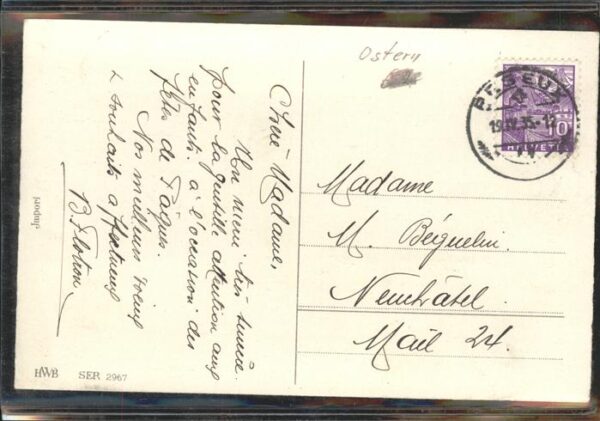 Ostern
Chère Madame,
Un merci très sincère
pour la gentille attention aux
enfants à l'occasion des
fêtes de Pâques.
Nos meilleurs voeux
& souhaits affectueux
Import
HWB SER 2967
PESEUX
19.IV.35-12
10
HELVETIA
Madame
M. Béguelin.
Neuchâtel
Mail 24.